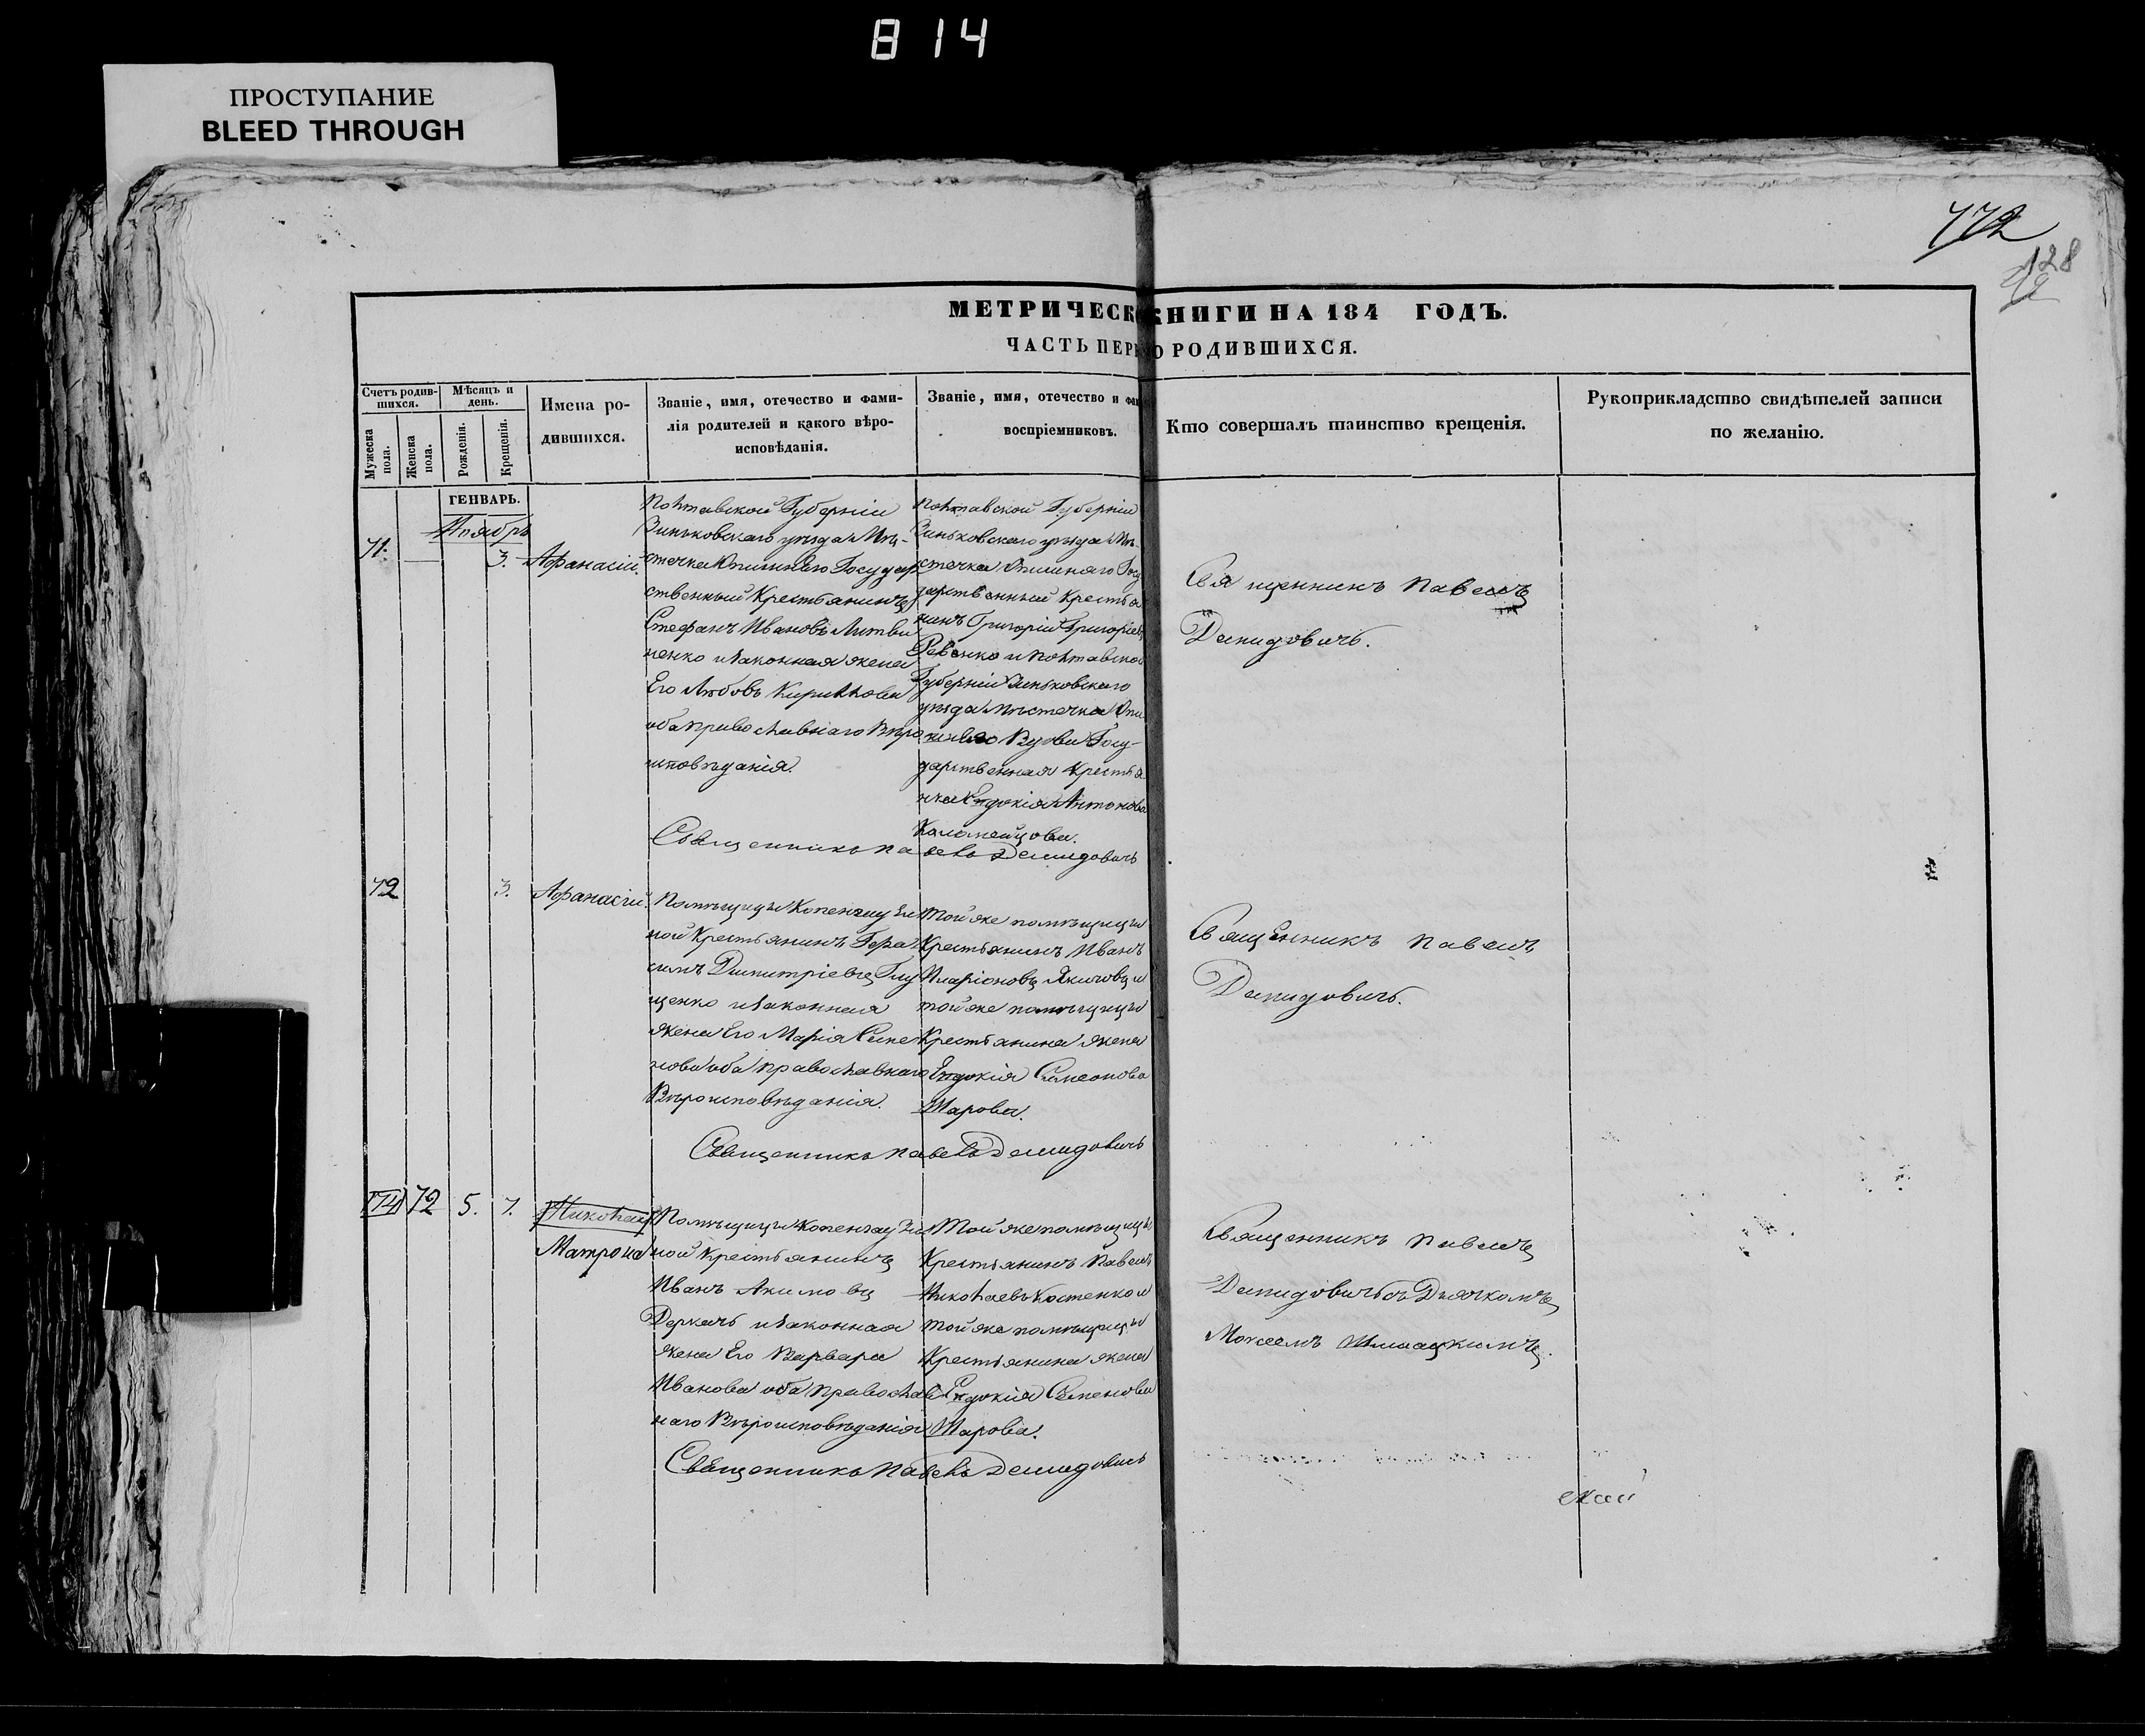 814
ПРОСТУПАНИЕ
BLEED THROUGH
772
128
МЕТРИЧЕСК КНИГИ НА 184 ГОДЪ.
ЧАСТЬ ПЕР О РОДИВШИХСЯ.
Счетъ родив-
шихся.
Мужеска
пола.
Женска
пола.
Мѣсяцъ и
день.
Рожденія.
Крещенія.
Имена ро-
дившихся.
Званіе, имя, отечество и фами-
лія родителей и какого вѣро-
исповѣданія.
Званіе, имя, отечество и фам
воспріемниковъ.
Кто совершалъ таинство крещенія.
Рукоприкладство свидѣтелей записи
по желанію.
ГЕНВАРЬ.
Ноябрь
71.
3.
Афанасій.
Полтавской Губерніи
Зиньковскаго уѣзда Мѣ-
стечка Опишнаго Государ
ственный Крестьянинъ
Стефанъ Ивановъ Литви
ненко и законная жена
Его Любовь Кирилова
оба православнаго Вѣро
исповѣданія.
Полтавской Губерніи
Зиньковскаго уѣзда Мѣ-
стечка Опишняго Госу
дарственный Крестья
нинъ Григорій Григорьевъ
Ревенко и Полтавской
Губерніи Зиньковскаго
уѣзда мѣстечка Опи
Вдова Госу-
дарственная Крестья
нка Евдокія Антонова
Коломейцова.
Священникъ Павелъ
Демидовичъ.
Священникъ Павелъ Демидовичъ
72
3.
Афанасій.
Помѣщицы
ной Крестьянинъ Гера
симъ Димитріевъ Глу
щенко и законная
жена Его Марія Семе
нова оба православнаго
Вѣроисповѣданія.
Той же помѣщицы
Крестьянинъ Иванъ
Иларіоновъ и
той же помѣщицы
Крестьянина жена
Евдокія Симеонова
Шарова.
Священникъ Павелъ
Демидовичъ.
Священникъ Павелъ Демидовичъ
74
72
5.
7.
Николай
Матрона
Помѣщицы
ной Крестьянинъ
Иванъ Акимовъ
Деркачъ и законная
жена Его Варвара
Иванова оба православ
наго Вѣроисповѣданія
Той же помѣщицы
Крестьянинъ Павелъ
Николаевъ Костенко и
той же помѣщицы
Крестьянина жена
Евдокія Семенова
Шарова.
Священникъ Павелъ
Демидовичъ съ Дьячкомъ
Моисеемъ
Священникъ Павелъ Демидовичъ